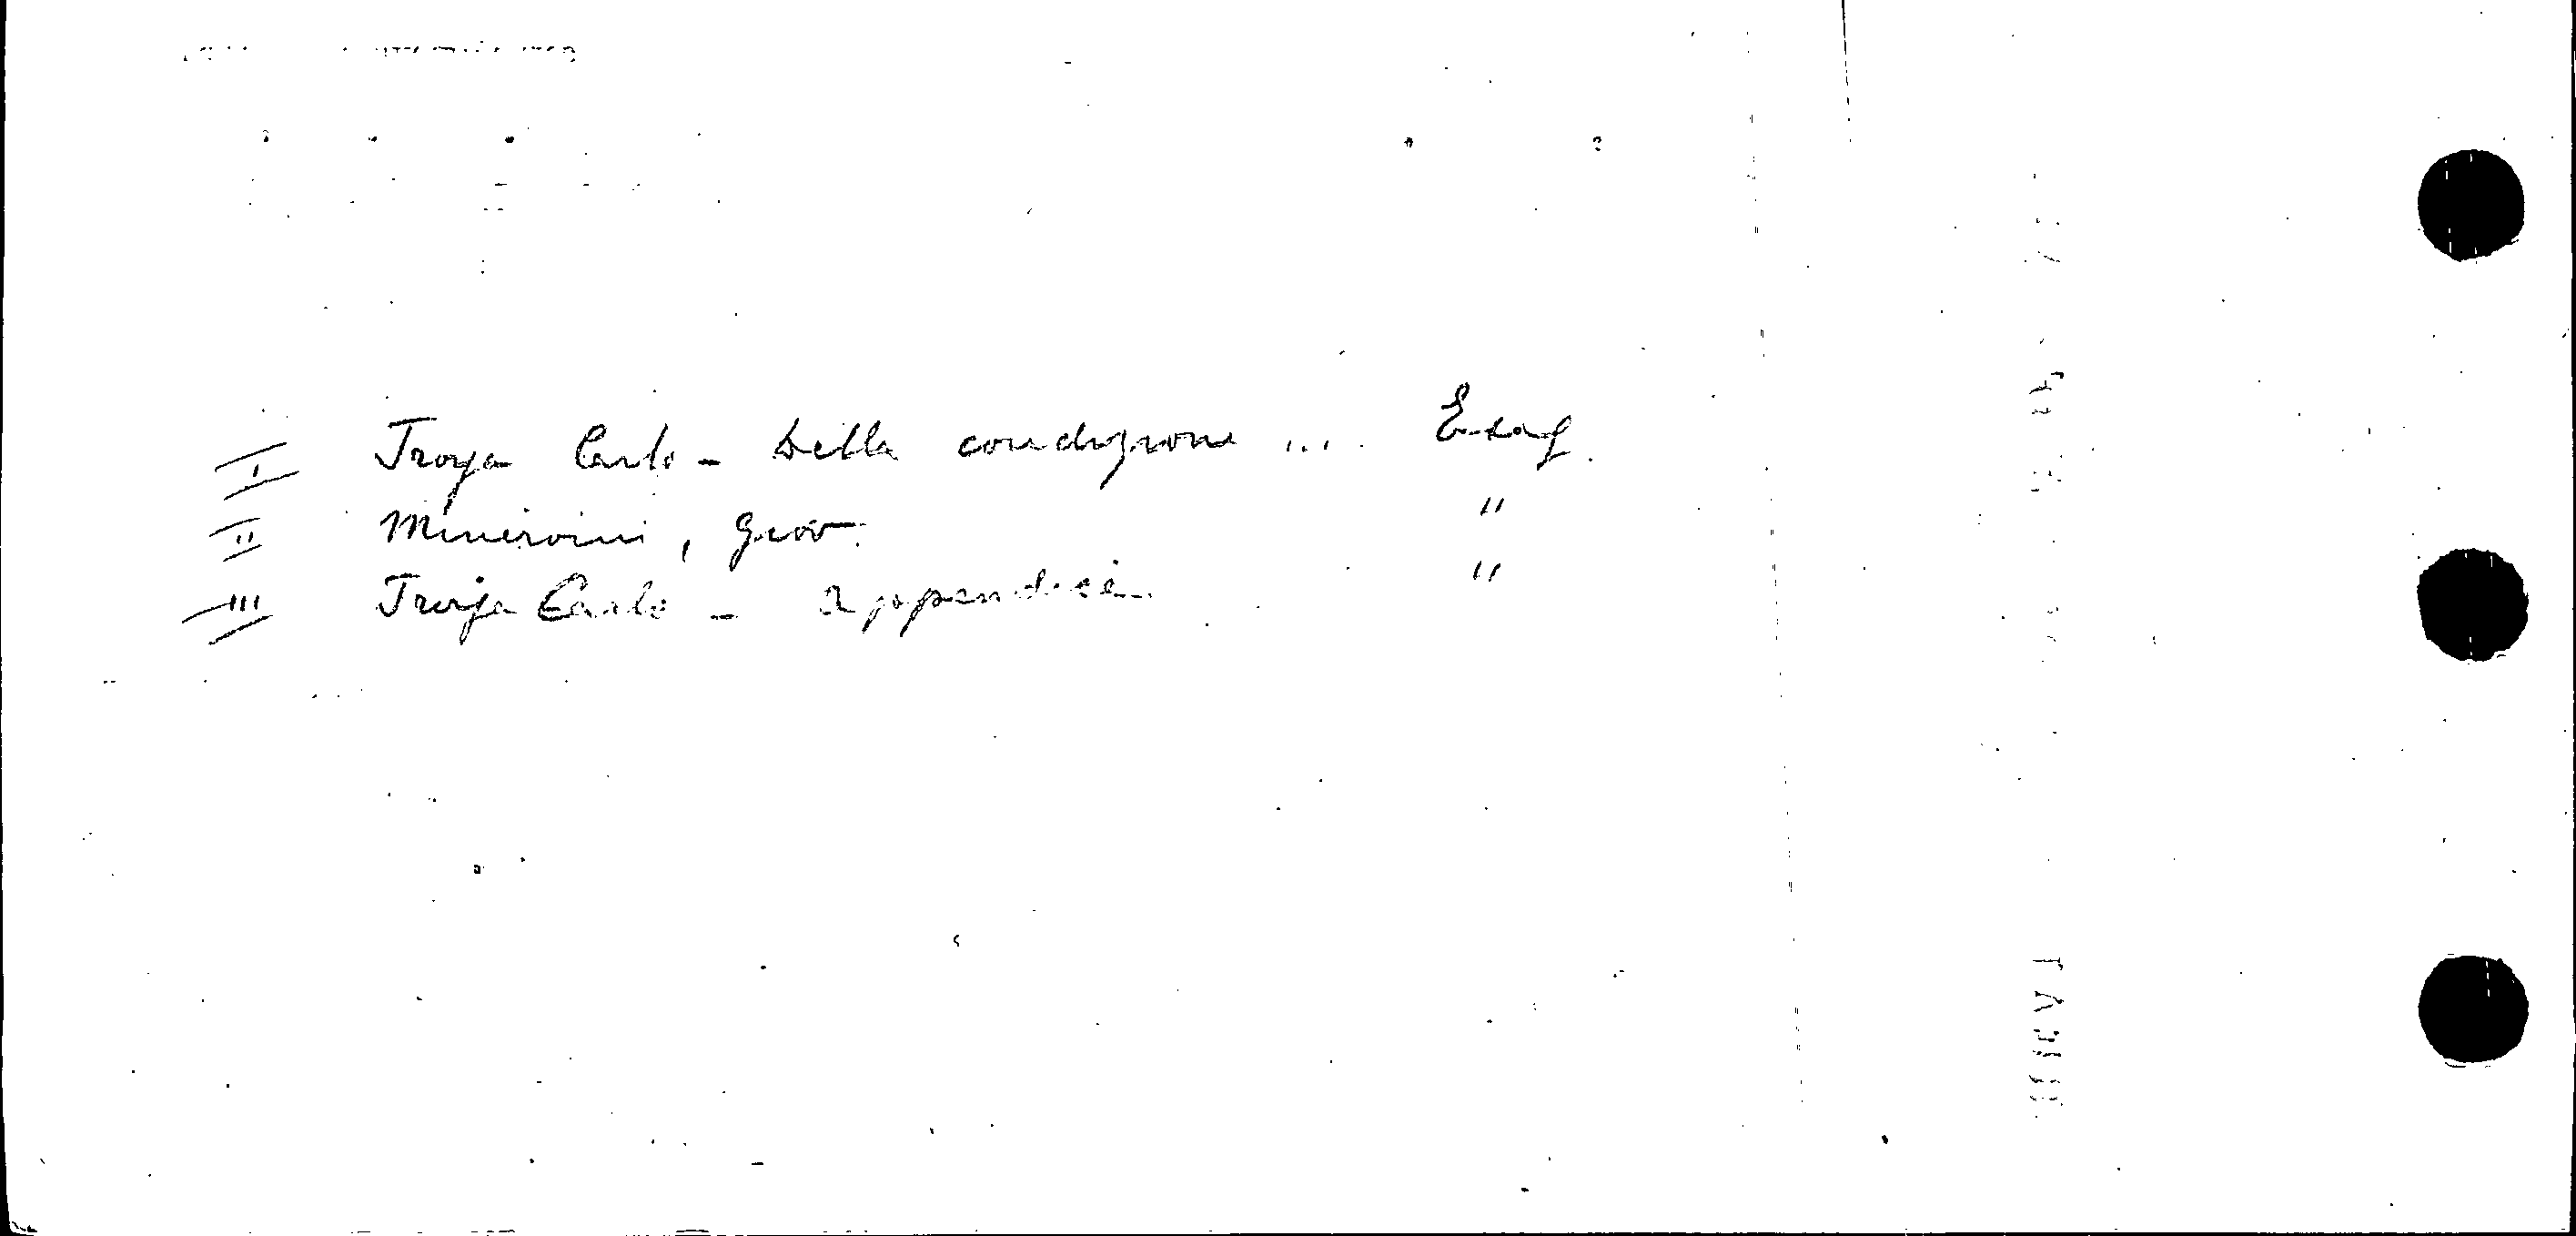 I Troya Carlo - Della condizione ... Esag.
II Minervini, Giov. "
III Troja Carlo - appendice. "